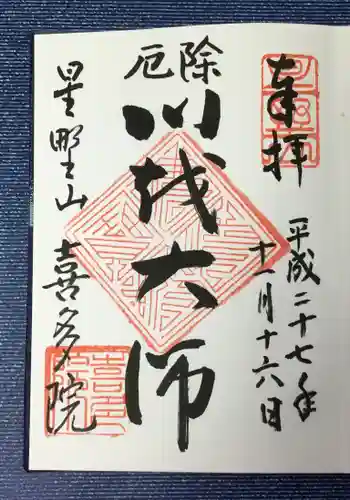 奉拝
平成二十七年
十一月十六日
厄除
川越大師
星野山
喜多院